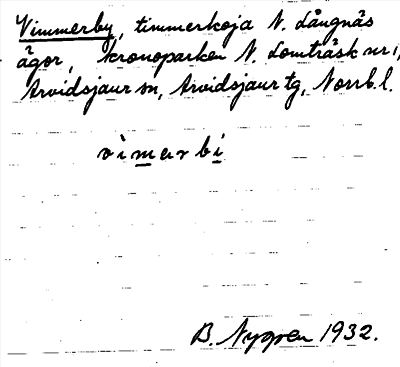 Vimmerby, timmerkoja N. Långnäs
ägor, kronoparken N. Lomträsk nr 1,
Arvidsjaur sn, Arvidsjaur tg, Norrb. l.
vìmarbi
B. Nygren 1932.